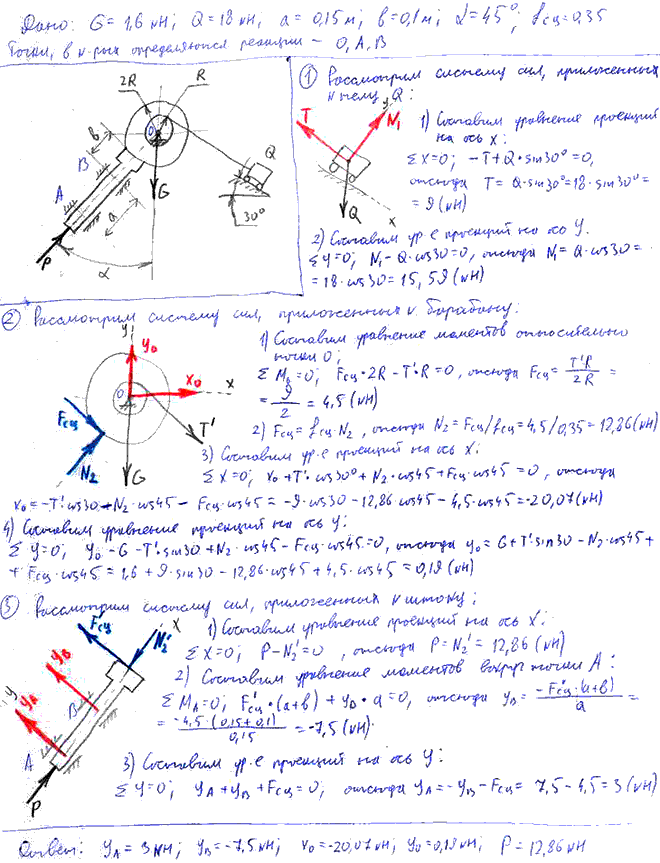 Дано: G = 1,6 кН; Q = 18 кН, a = 0,15 м; b = 0,1 м; α = 45°; fсц = 0,35
Точки, в к-рых определяются реакции – O, A, B
2R R
O
b
B
A
a
G
Q
30°
P
α
① Рассмотрим систему сил, приложенных
к телу Q:
y
T
N₁
Q
x
1) Составим уравнение проекций
на ось x:
ΣX=0; -T+Q·sin30°=0,
отсюда T = Q·sin30°=18·sin30°=
= 9 (кН)
2) Составим ур-е проекций на ось y.
ΣY=0; N₁-Q·cos30=0, отсюда N₁=Q·cos30=
=18·cos30=15,59 (кН)
② Рассмотрим систему сил, приложенных к барабану:
y
Y₀
X₀
x
O
Fсц
N₂
T'
G
1) Составим уравнение моментов относительно
точки O;
ΣM₀=0; Fсц·2R-T'·R=0, отсюда Fсц = T'R/2R =
= 9/2 = 4,5 (кН)
2) Fсц = fсц·N₂, отсюда N₂=Fсц/fсц=4,5/0,35=12,86(кН)
3) Составим ур-е проекций на ось x:
ΣX=0; X₀+T'·cos30°+N₂·cos45+Fсц·cos45=0, отсюда
X₀=-T'·cos30-N₂·cos45-Fсц·cos45=-9·cos30-12,86·cos45-4,5·cos45=-20,07(кН)
4) Составим уравнение проекций на ось y:
ΣY=0; Y₀-G-T'·sin30+N₂·cos45-Fсц·cos45=0, отсюда Y₀=G+T'sin30-N₂·cos45+
+Fсц·cos45=1,6+9·sin30-12,86·cos45+4,5·cos45=0,19(кН)
③ Рассмотрим систему сил, приложенных к штоку;
F'сц
x
N₂'
y
Y_B
Y_A
B
A
P
1) Составим уравнение проекций на ось x:
ΣX=0; P-N₂'=0, отсюда P=N₂'=12,86(кН)
2) Составим уравнение моментов вокруг точки A:
ΣM_A=0; F'сц·(a+b)+Y_B·a=0, отсюда Y_B= -F'сц·(a+b)/a =
= -4,5·(0,15+0,1)/0,15 = -7,5(кН).
3) Составим ур-е проекций на ось y:
ΣY=0; Y_A+Y_B+Fсц=0; отсюда Y_A=-Y_B-Fсц= 7,5-4,5=3(кН)
Ответ: Y_A = 3 кН; Y_B = -7,5 кН; X₀ = -20,07 кН; Y₀ = 0,19 кН; P = 12,86 кН